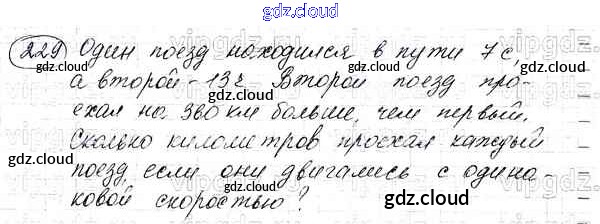 gdz.cloud
229 Один поезд находился в пути 7 с,
а второй - 13 г Второй поезд про-
ехал на 360 км больше, чем первый.
Сколько километров проехал каждый
поезд, если они двигались с одина-
ковой скоростью?
gdz.cloud gdz.cloud
gdz.cloud gdz.cloud
gdz.cloud gdz.cloud
gdz.cloud
gdz.cloud